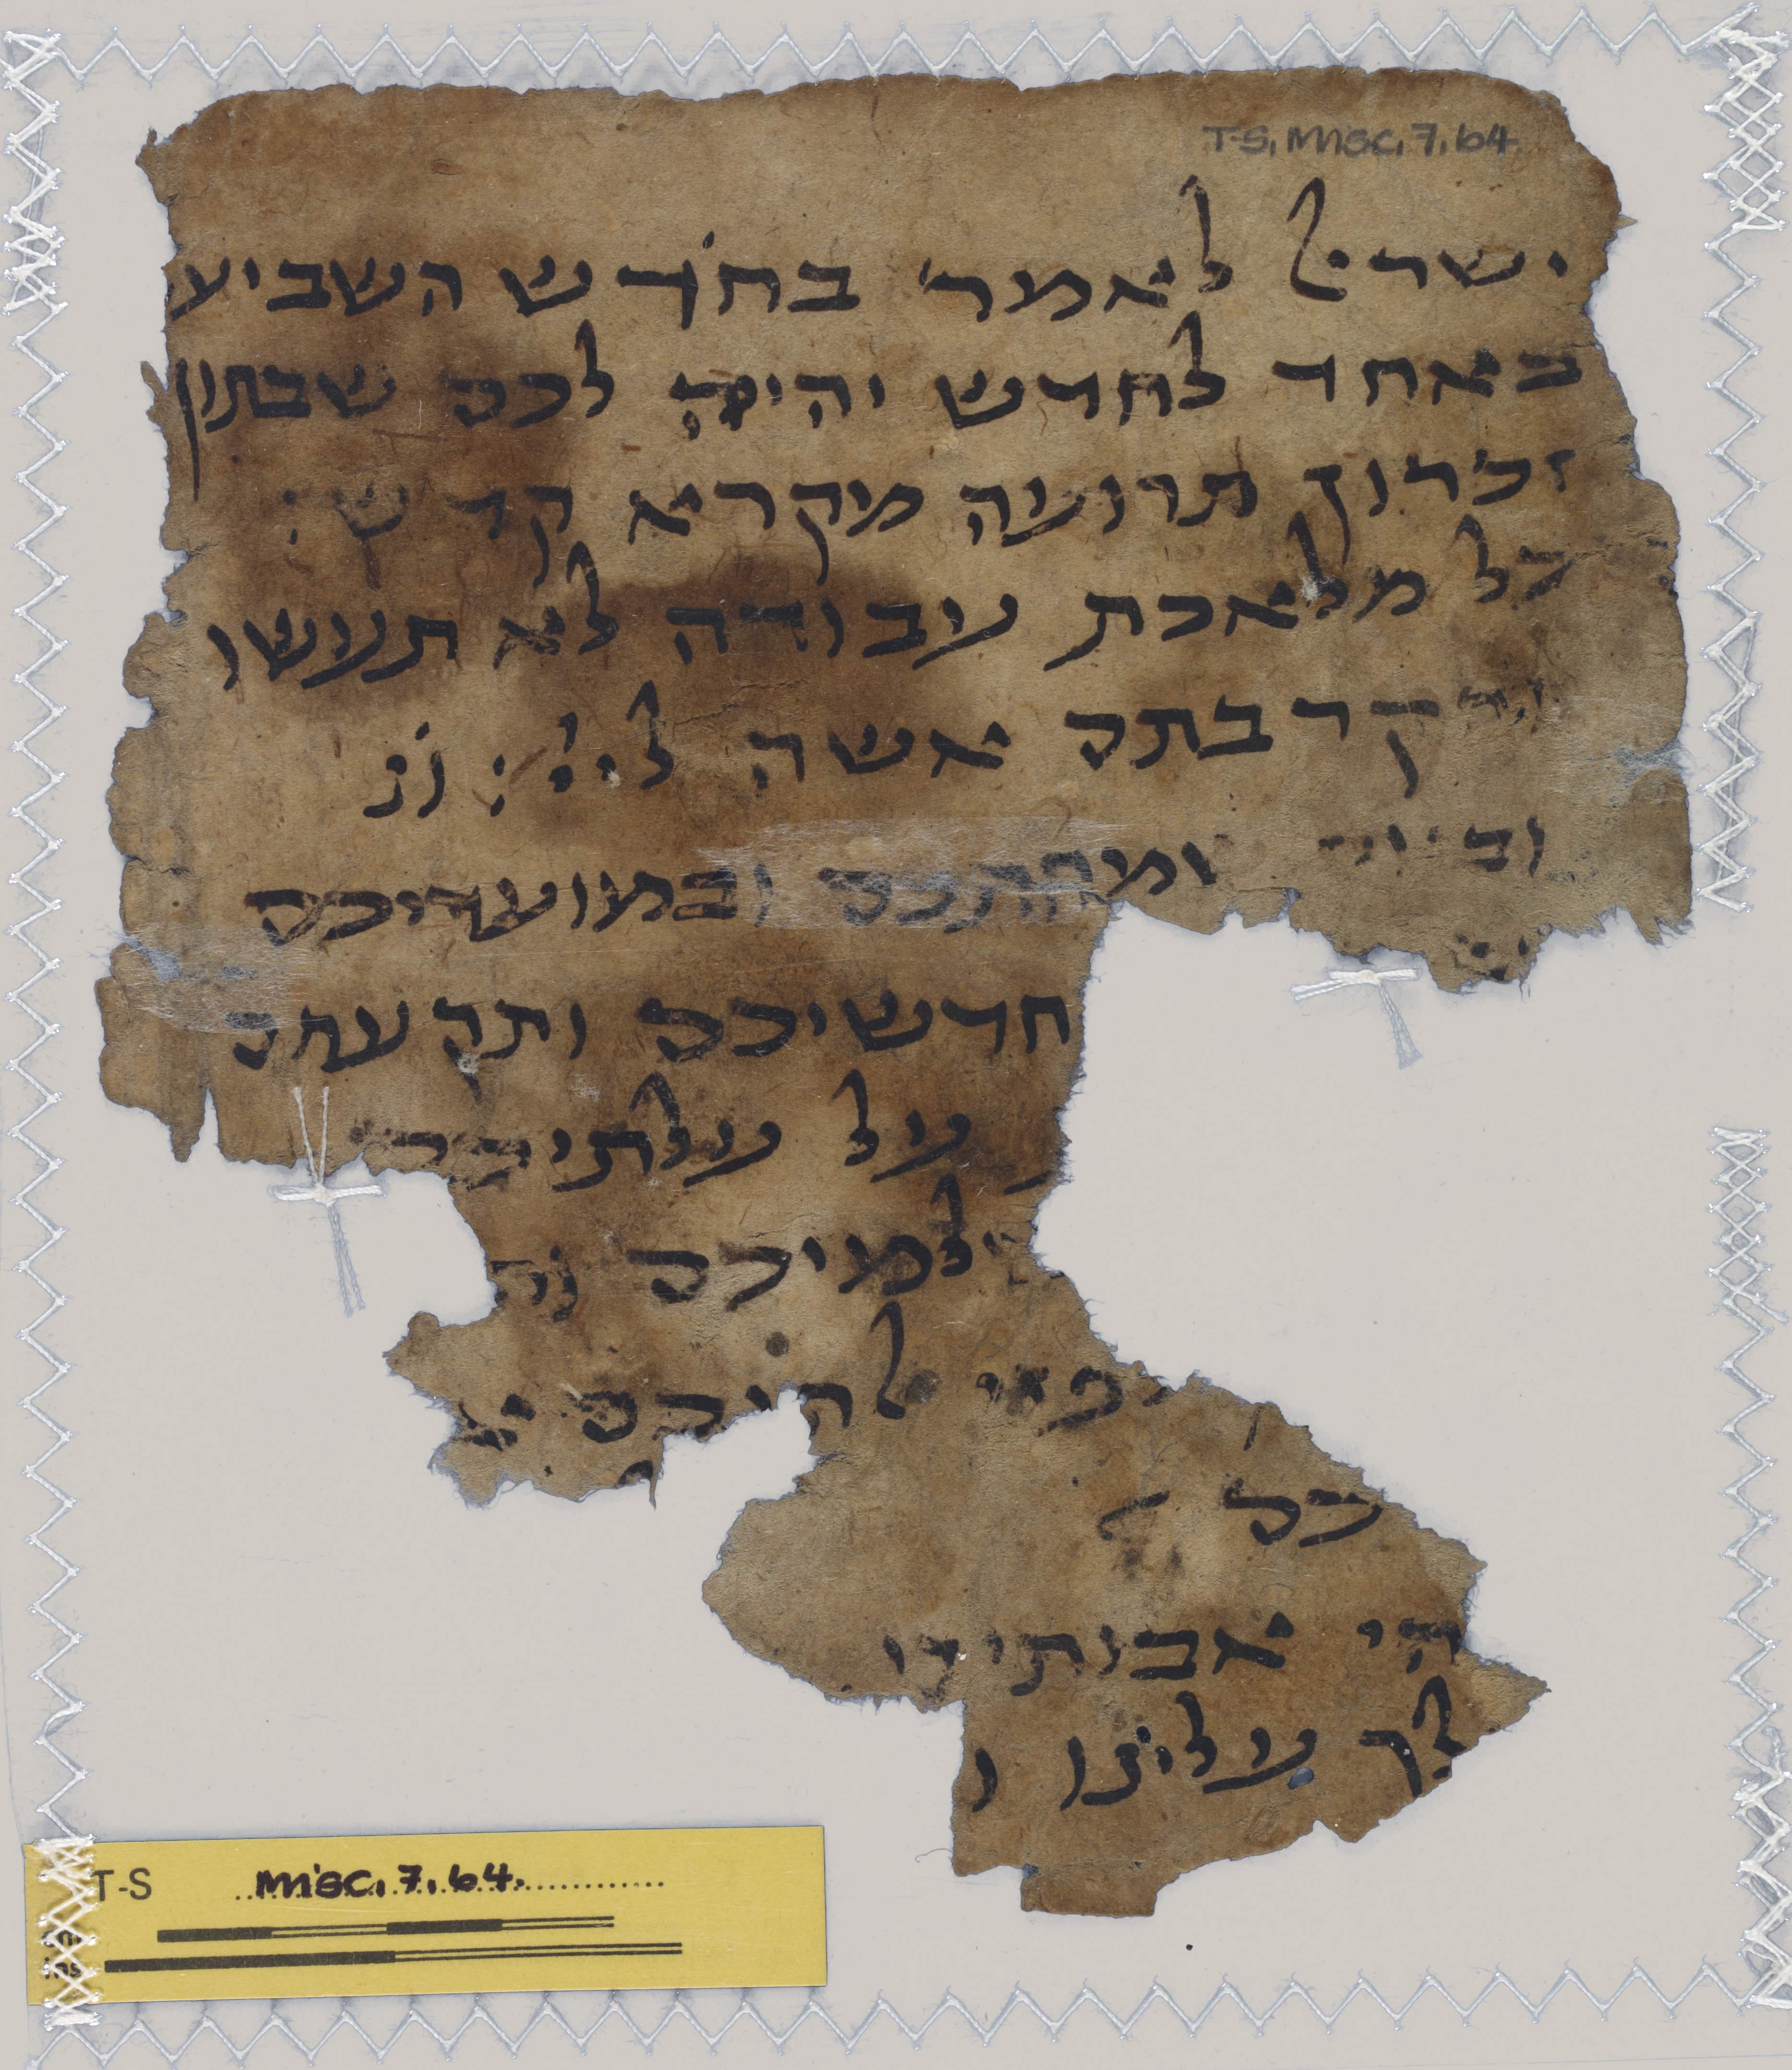 T-S, Misc. 7. 64.
ישרל לאמר בחדש השביע
באחד לחדש יהיה לכם שבתון
זכרון תרועה מקרא קדש
כל מלאכת עבודה לא תעשו
והקרבתם אשה ליי
שמחתכם ובמועדיכם
חדשיכם ותקעתם
על עלתיכם
שלמיכם
להיכם
כם
הי אבותינו
לך עלינו ו
T-S misc. 7. 64.
cms
ins